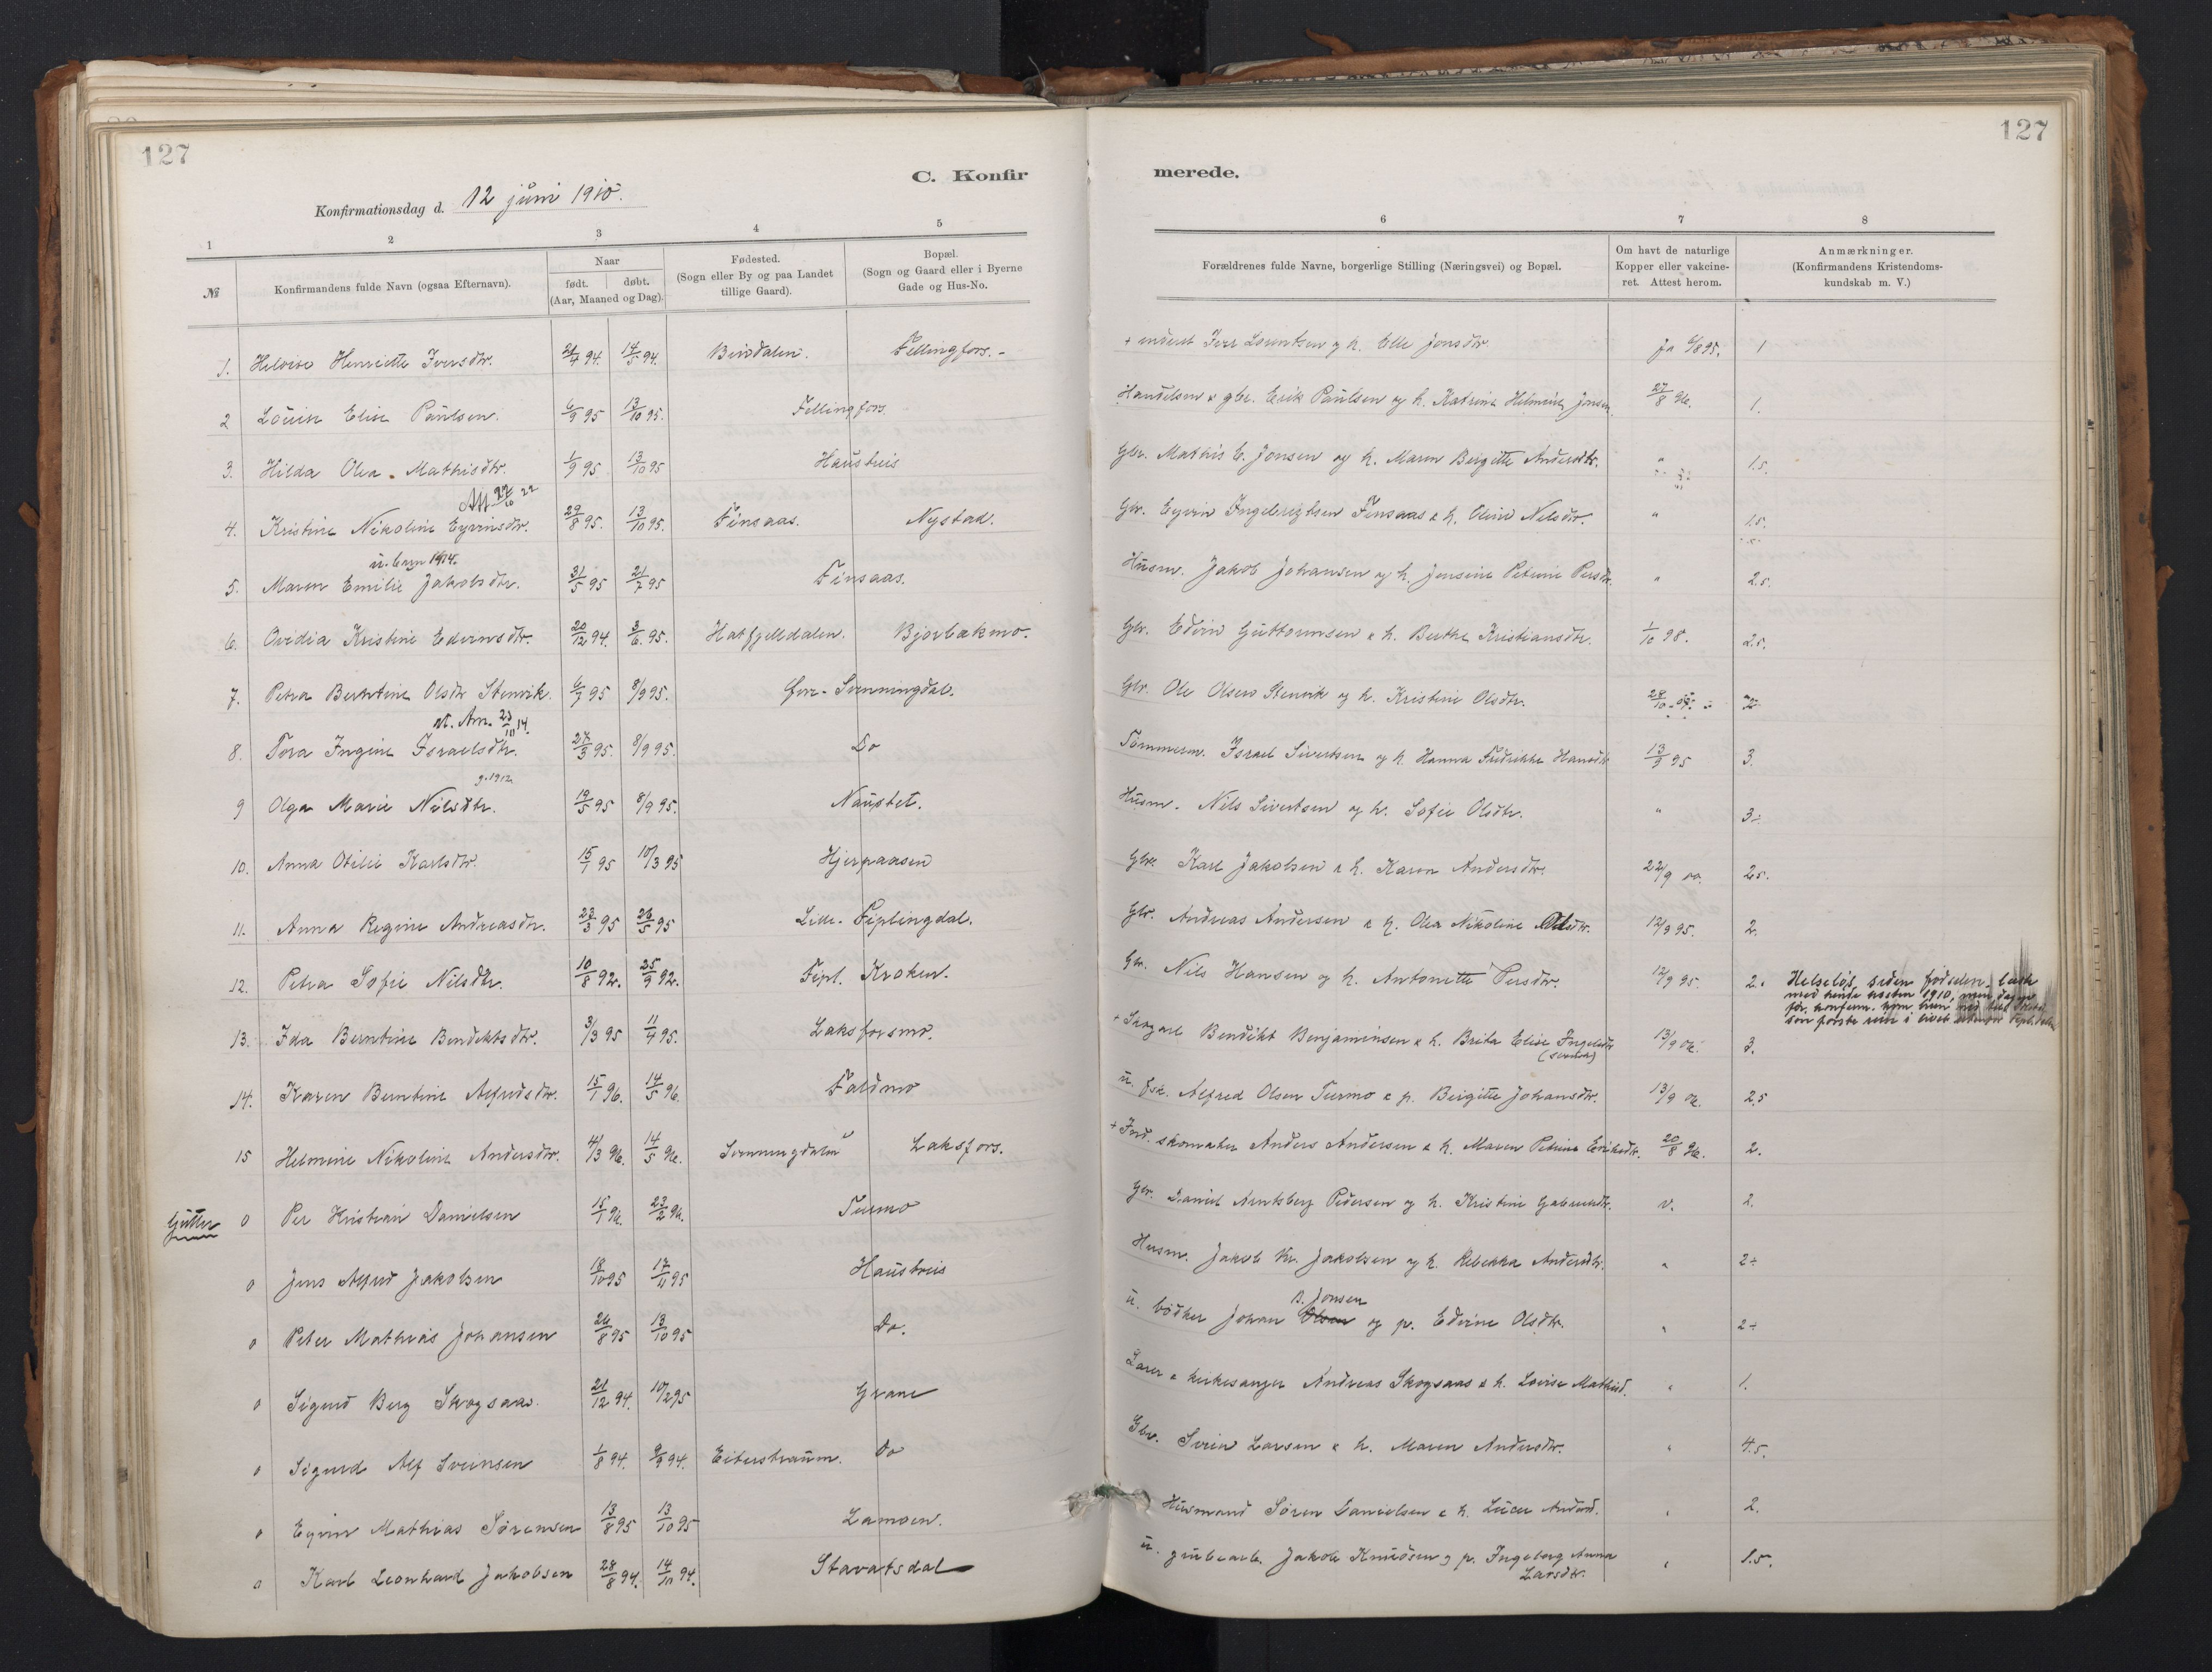 127
127
C. Konfir
merede.
Konfirmationsdag d. 12 juni 1910.
1 2 3 4 5 6 7 8
№ Konfirmandens fulde Navn (ogsaa Efternavn). Naar født. døbt. (Aar, Maaned og Dag). Fødested. (Sogn eller By og paa Landet tillige Gaard). Bopæl. (Sogn og Gaard eller i Byerne Gade og Hus-No.
Forældrenes fulde Navne, borgerlige Stilling (Næringsvei) og Bopæl. Om havt de naturlige Kopper eller vakcineret. Attest herom. Anmærkninger. (Konfirmandens Kristendomskundskab m. V.)
1. Henriette Iversdtr. 94. 14/5 94. Bindalen. Fellingfors. - Iver og h. Elle Jonsdtr. ja 95. 1
2 Louise Elise Paulsen. 6/9 95 13/10 95. Fellingfors. Handelsm & gbr. Erik Paulsen og h. Katrine Jonsen. 27/8 96. 1.
3. Hilda Olea Mathisdtr. 1/9 95 13/10 95 Haustreis Gbr. Mathis E. Jonsen og h. Maren Bergitte Andersdtr. " 1.5.
22
4. Kristine Nikoline Eyvinsdtr. 29/8 95. 13/10 95. Finsaas. Nystad. Gbr. Eyvin Ingebrigtsen Finsaas & h. Oline Nilsdtr. " 1.5.
1914.
5. Maren Emilie Jakobsdtr. 31/5 95 21/7 95 Finsaas. Husm. Jakob Johansen og h. Jensine Petrine Persdtr. " 2.5.
6. Ovidia Kristine Edvinsdtr. 20/12 94. 3/6 95. Hatfjelldalen. Bjorbækmo. Gbr. Edvin Guttormsen & h. Berthe Kristiansdtr. 1/10 98. 2.5.
7. Petra Berntine Olsdtr Stenvik. 6/7 95 8/9 95. Gbr. Ole Olsen Stenvik og h. Kristine Olsdtr. 28/10
ut. Am. 23/10 14.
8. Tora Ingine Israelsdtr. 27/3 95. 8/9 95. Do Tømmerm. Israel Sivertsen og h. Hanna Fredrikke Hansdtr 13/9 95 3.
g. 1912
9 Olga Marie Nilsdtr. 19/5 95 8/9 95. Naustet. Husm. Nils Sivertsen og h. Sofie Olsdtr. " 3÷
10. Anna Otilie Karlsdtr. 15/1 95 10/3 95 Hjerpaasen Gbr. Karl Jakobsen & h. Karen Andersdtr. 22/9 2.5.
11. Anna Regine Andreasdtr. 23/3 95 26/5 95 Lille-Fiplingdal. Gbr. Andreas Andersen & h. Olea Nikoline Olsdtr. 12/9 95. 2.
12. Petra Sofie Nilsdtr. 10/8 92. 25/9 92. Fipl. Kroken. Gbr. Nils Hansen og h. Antonette Persdtr. 12/9 95. 2. Helseløs siden fødselen.
med hende høsten 1910, men dagen
som første rein i livet udenfor
13. Ida Berntine Bendiktsdtr. 3/3 95 11/4 95. Laksforsmo. + Skogarb Bendikt Benjaminsen & h. Brita Elise Ingelsdtr 13/9 3.
14. Karen Berntine Alfredsdtr. 15/1 96. 14/5 96. Faldmo u. fsk. Alfred Olsen Turmo & p. Birgitte Johansdtr. 13/9 2.5
15 Helmine Nikoline Andersdtr. 4/3 96. 14/5 96. Svenningdalen Laksfors. + Ford. skomaker Anders Andersen & h. Maren Petrine Eriksdtr. 20/8 96. 2.
Gutter
0 Per Kristian Danielsen 15/1 96. 23/2 96. Turmo Gbr. Daniel Arntsberg Pedersen og h. Kristine Gabrielsdtr. v. 2.
0 Jens Alfred Jakobsen 18/10 95 17/11 95 Haustreis Husm. Jakob Kr. Jakobsen og h. Rebekka Andersdtr. " 2÷
B. Jonsen
0 Peter Mathias Johansen 26/8 95 13/10 95 Do. u. bødker Johan Olsen og p. Edvine Olsdtr. " 2÷
0 Sigurd Berg Skogsaas. 21/12 94. 10/2 95 Grane Lærer & kirkesanger Andreas Skogsaas & h. Lovise Mathisd. " 1.
0 Sigurd Alf Sveinsen 1/8 94. 9/9 94. Eiterstraum. Do Gbr. Svein Larsen & h. Maren Andersdtr. " 4.5.
0 Eyvin Mathias Sørensen 13/8 95 13/10 95 Lamoen. Husmand Søren Danielsen & h. Lucie Andersd. " 2.
0 Karl Leonhard Jakobsen 28/8 94. 14/10 94. Stavatsdal u. grubearb. Jakob Knudsen og p. Ingeborg Anna Larsdtr. " 1.5.